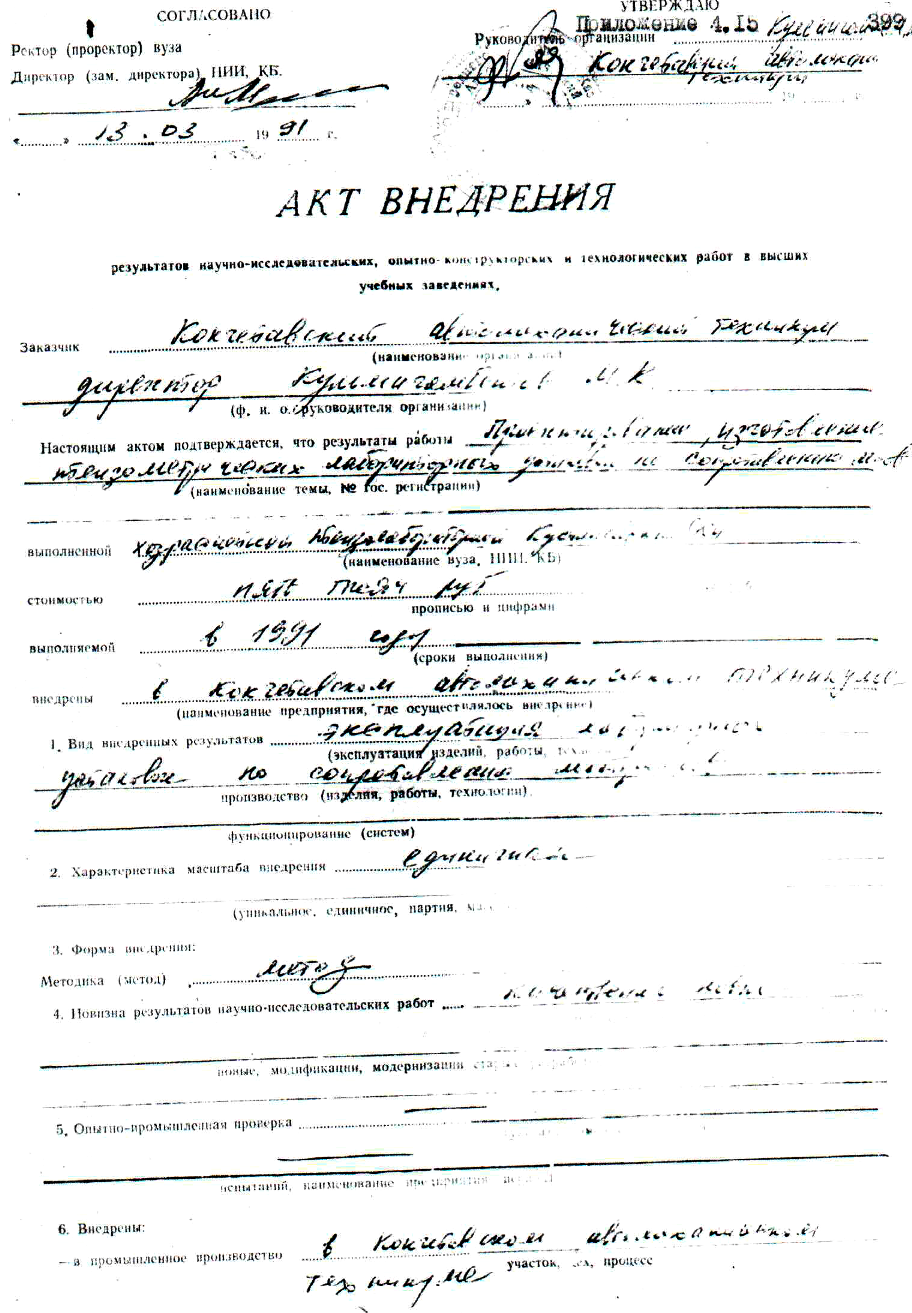 СОГЛАСОВАНО
УТВЕРЖДАЮ
Приложение 4.15 399
Ректор (проректор) вуза
Руководитель организации
Директор (зам. директора) НИИ, КБ.
Кокчетавский автомехан.
техникум
« » 13.03 1991 г.
19
АКТ ВНЕДРЕНИЯ
результатов научно-исследовательских, опытно-конструкторских и технологических работ в высших
учебных заведениях.
Заказчик Кокчетавский автомеханический техникум
(наименование организации)
директор М.К.
(ф. и. о. руководителя организации)
Настоящим актом подтверждается, что результаты работы Проектирование, изготовление
тензометрических лабораторных установок по сопротивлению
(наименование темы, № гос. регистрации)
выполненной хозрасчетной тензолабораторией
(наименование вуза, НИИ, КБ)
стоимостью пять тысяч руб
прописью и цифрами
выполняемой в 1991 году
(сроки выполнения)
внедрены в Кокчетавском автомеханическом техникуме
(наименование предприятия, где осуществлялось внедрение)
1. Вид внедренных результатов эксплуатация
(эксплуатация изделий, работы,
установок по сопротивлению
производство (изделия, работы, технологии)
функционирование (систем)
2. Характеристика масштаба внедрения
(уникальное, единичное, партия,
3. Форма внедрения:
Методика (метод) метод
4. Новизна результатов научно-исследовательских работ
новые, модификации, модернизации
5. Опытно-промышленная проверка
испытаний, наименование предприятия,
6. Внедрены:
— в промышленное производство в Кокчетавском автомеханическом
участок, цех, процесс
техникуме